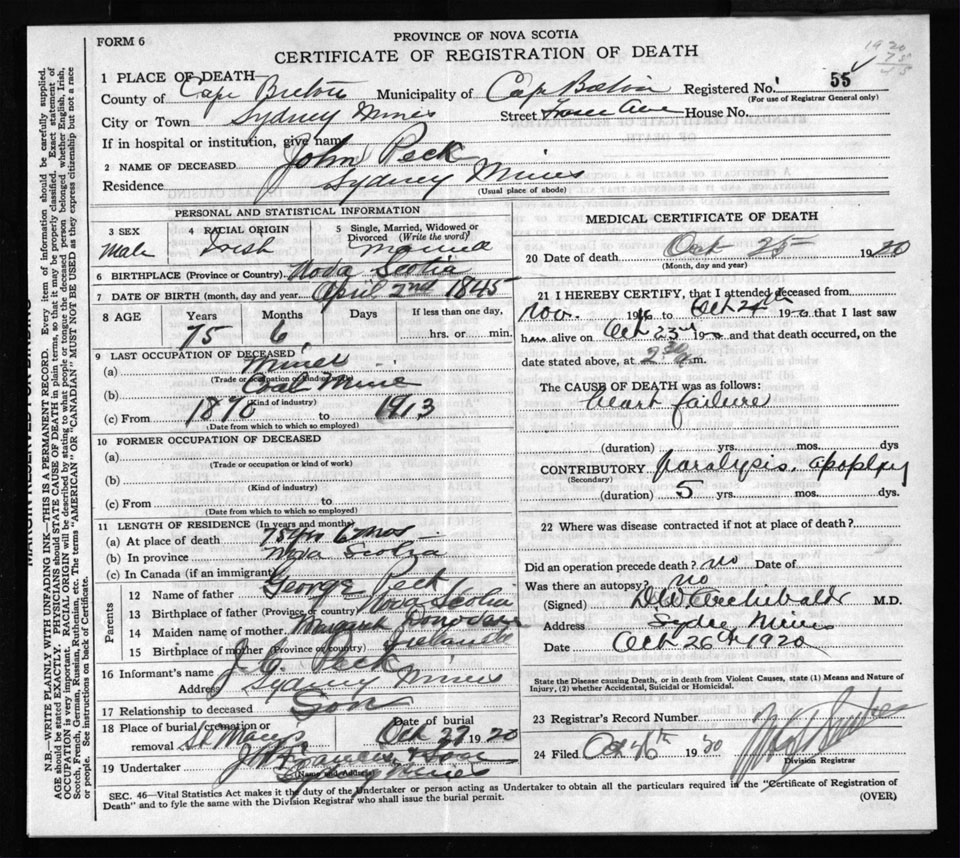 FORM 6
PROVINCE OF NOVA SCOTIA
CERTIFICATE OF REGISTRATION OF DEATH
1920
75
1 PLACE OF DEATH
County of Cape Breton Municipality of Cape Breton Registered No. 55
(For use of Registrar General only)
City or Town Sydney Mines Street Ave House No.
If in hospital or institution, give name
2 NAME OF DECEASED John Peck
Residence Sydney Mines
(Usual place of abode)
PERSONAL AND STATISTICAL INFORMATION
3 SEX Male
4 RACIAL ORIGIN Irish
5 Single, Married, Widowed or Divorced (Write the word) Married
6 BIRTHPLACE (Province or Country) Nova Scotia
7 DATE OF BIRTH (month, day and year) April 2nd 1845
8 AGE Years Months Days If less than one day,
75 6 hrs. or min.
9 LAST OCCUPATION OF DECEASED
(a) Miner
(Trade or occupation or kind of work)
(b) Coal Mine
(Kind of industry)
(c) From 1870 to 1913
(Date from which to which so employed)
10 FORMER OCCUPATION OF DECEASED
(a)
(Trade or occupation or kind of work)
(b)
(Kind of industry)
(c) From to
(Date from which to which so employed)
11 LENGTH OF RESIDENCE (In years and months)
(a) At place of death 75 yrs 6 mos
(b) In province Nova Scotia
(c) In Canada (if an immigrant)
Parents
12 Name of father George Peck
13 Birthplace of father (Province or country) Nova Scotia
14 Maiden name of mother Margaret Donovan
15 Birthplace of mother (Province or country) Ireland
16 Informant's name Peck
Address Sydney Mines
17 Relationship to deceased Son
18 Place of burial, cremation or removal St Marys
Date of burial Oct 27 1920
19 Undertaker
(Name and Address)
Sy Mines
MEDICAL CERTIFICATE OF DEATH
20 Date of death Oct 25 1920
(Month, day and year)
21 I HEREBY CERTIFY, that I attended deceased from
Nov. 1916 to Oct 24th 1920 that I last saw
him alive on Oct 23rd 1920 and that death occurred, on the
date stated above, at m.
The CAUSE OF DEATH was as follows:
heart failure
(duration) yrs. mos. dys
CONTRIBUTORY paralysis, apoplexy
(Secondary)
(duration) 5 yrs. mos. dys.
22 Where was disease contracted if not at place of death?
Did an operation precede death? no Date of
Was there an autopsy? no
(Signed) D.W. Archibald M.D.
Address Sydney Mines
Date Oct 26th 1920
State the Disease causing Death, or in death from Violent Causes, state (1) Means and Nature of
Injury, (2) whether Accidental, Suicidal or Homicidal.
23 Registrar's Record Number
24 Filed Oct 26th 1920
Division Registrar
SEC. 46—Vital Statistics Act makes it the duty of the Undertaker or person acting as Undertaker to obtain all the particulars required in the "Certificate of Registration of
Death" and to fyle the same with the Division Registrar who shall issue the burial permit.
(OVER)
MARGIN RESERVED FOR BINDING
N.B.—WRITE PLAINLY WITH UNFADING INK—THIS IS A PERMANENT RECORD. Every item of information should be carefully supplied.
AGE should be stated EXACTLY. PHYSICIANS should STATE CAUSE OF DEATH in plain terms, so that it may be properly classified. Exact statement of
OCCUPATION is very important. RACIAL ORIGIN will be described by stating to what people or tongue the deceased person belonged whether English, Irish,
Scotch, French, German, Russian, Ruthenian, etc. The terms "AMERICAN" OR "CANADIAN" MUST NOT BE USED as they express citizenship but not a race
or people. See instructions on back of Certificate.